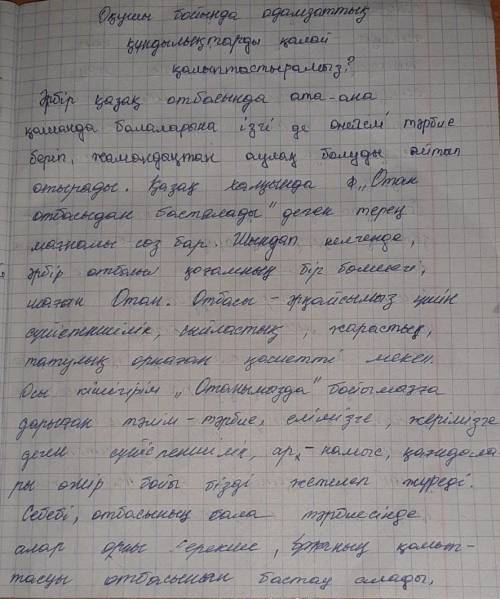 Оқушы бойында адамзаттық
құндылықтарды қалай
қалыптастырамыз?
Әрбір қазақ отбасында ата-ана
қашанда балаларына ізгі де өнегелі тәрбие
беріп, жамандақтан аулақ болуды айтып
отырады. Қазақ халқында „Отан
отбасыдан басталады" деген терең
мағыналы сөз бар. Шындап келгенде,
әрбір отбасы қоғамның бір бөлшегі,
шағын Отан. Отбасы - әрқайсымыз үшін
сүйіспеншілік, сыйластық, жарастық,
татулық орнаған қасиетті мекен.
Осы кішігірім „Отанымызда" бойымызға
дарыған тәлім-тәрбие, елімізге, жерімізге
деген сүйіспеншілік, ар-намыс, қағидала
ры өмір бойы бізді жетелеп жүреді.
Себебі, отбасының бала тәрбиесінде
алар орны ерекше, қалып-
тасуы отбасынын бастау алады,